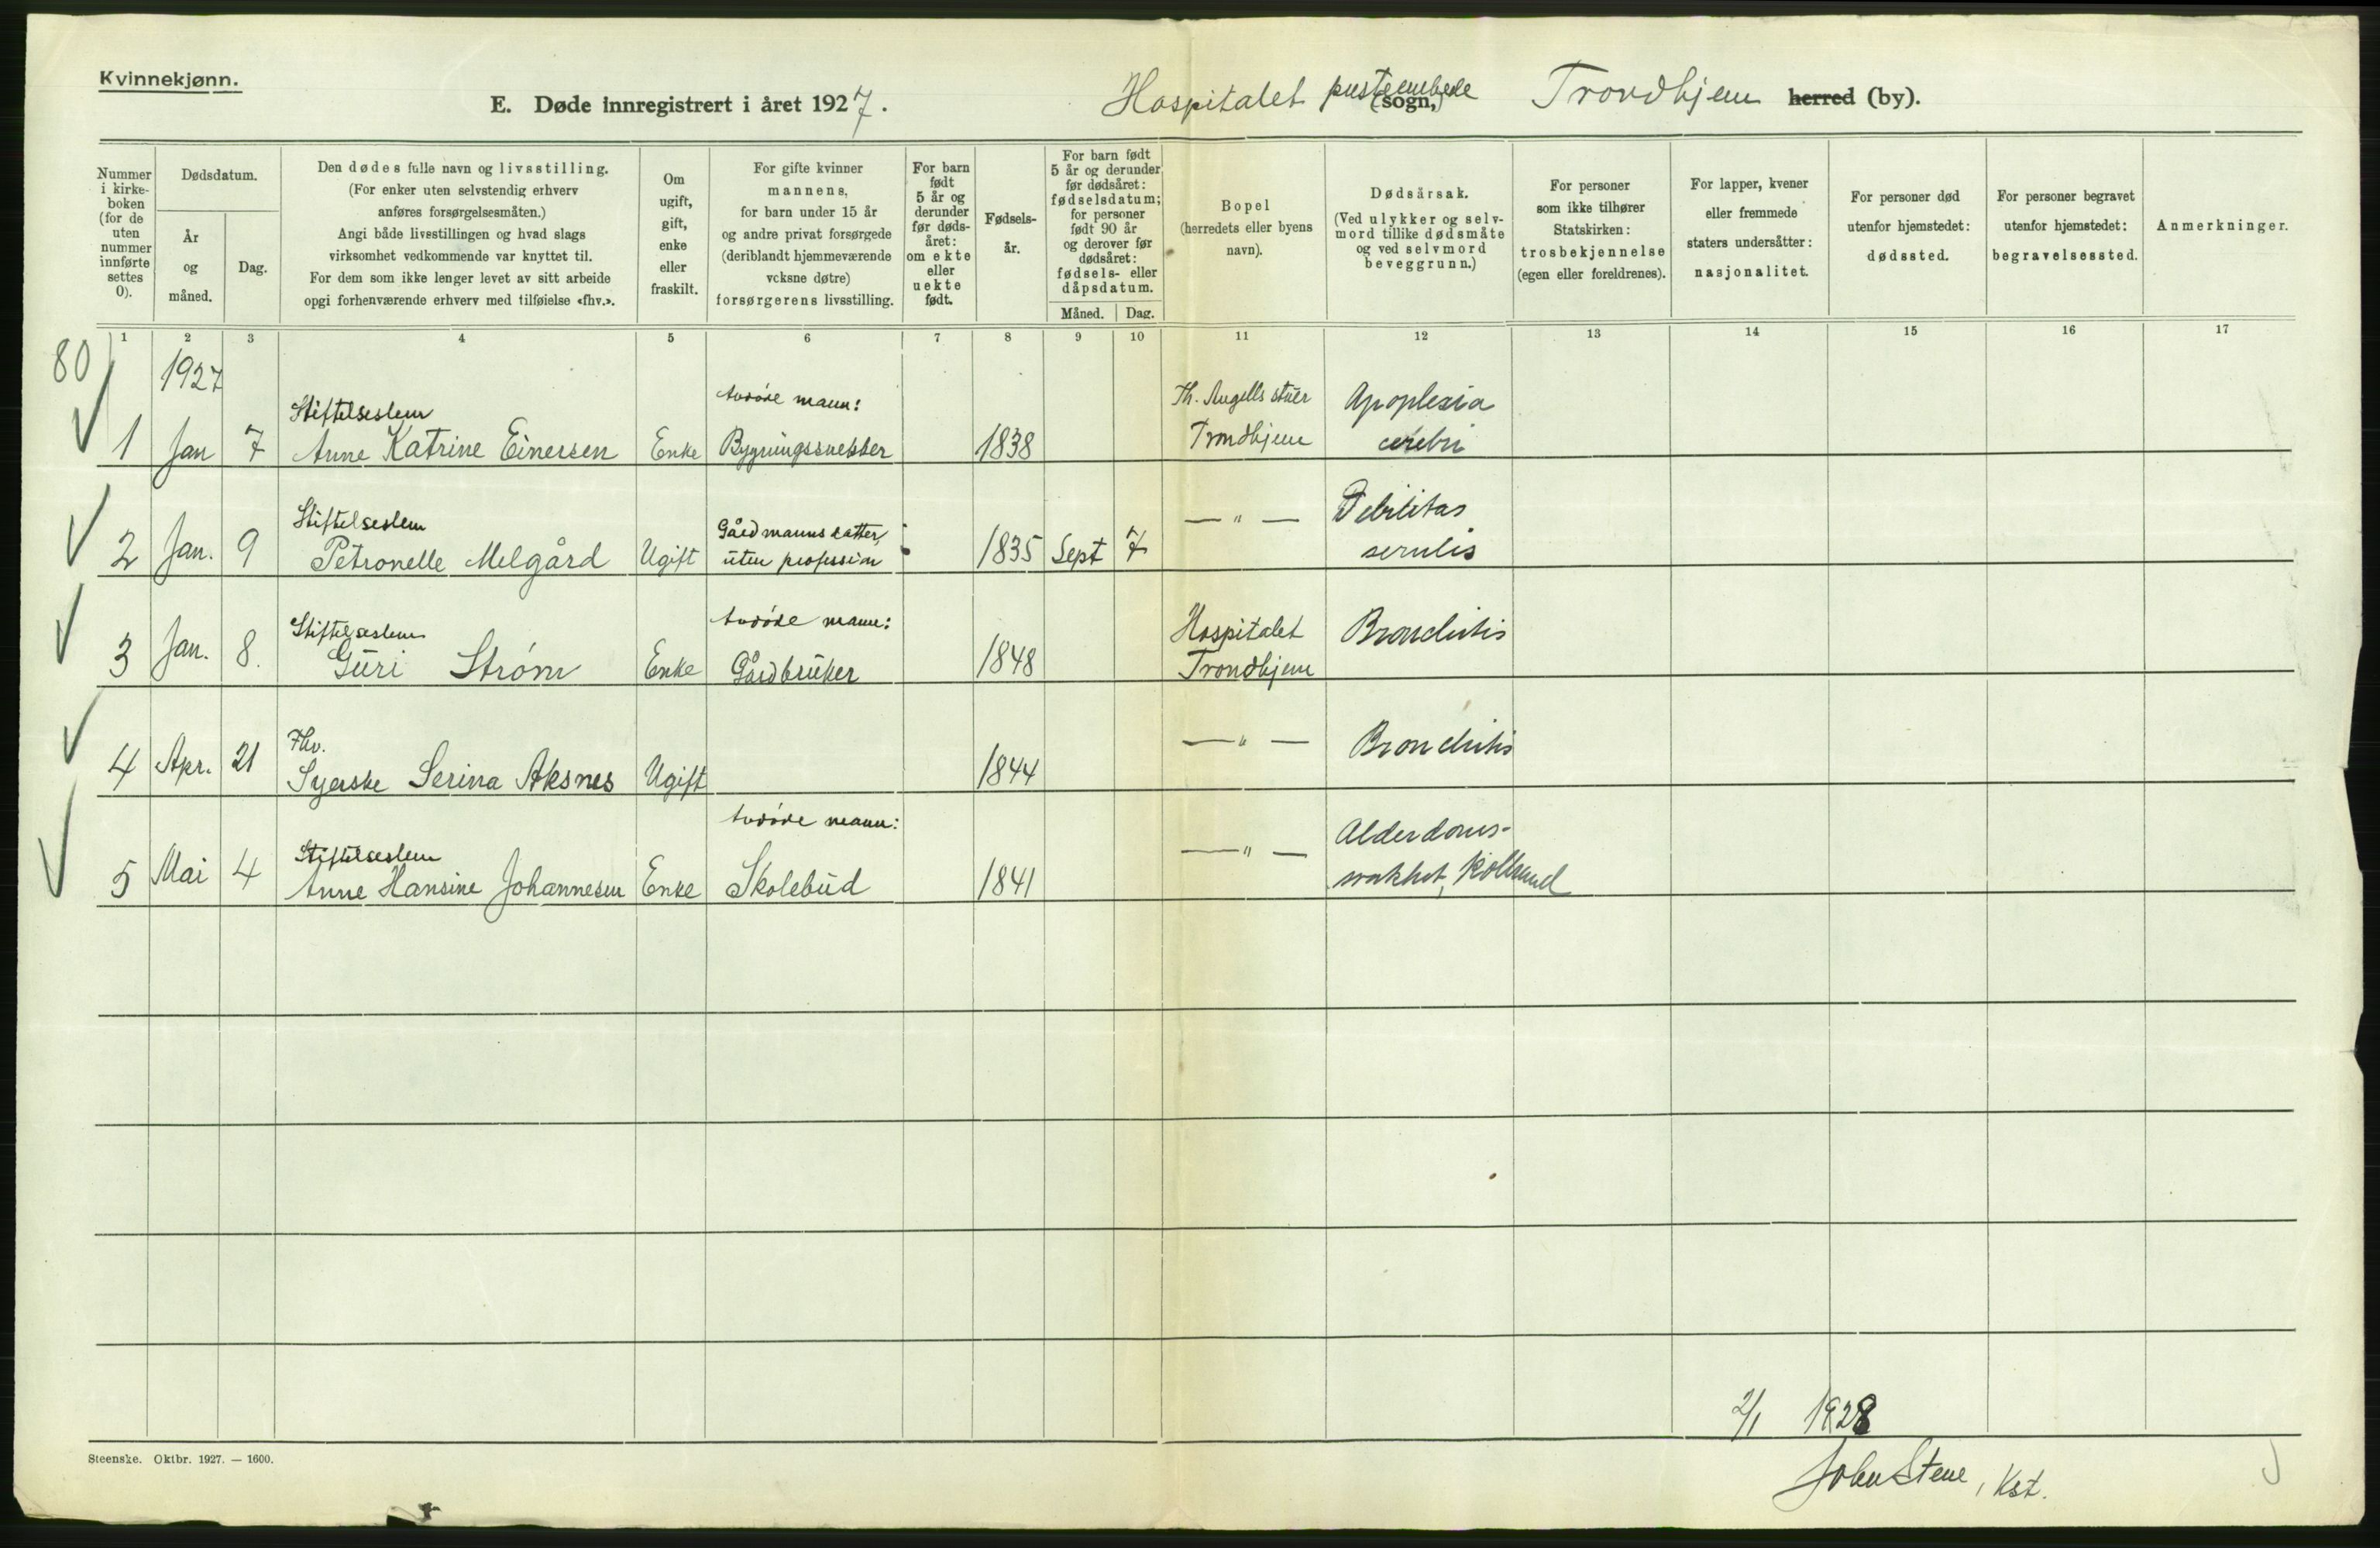 Kvinnekjønn.
E. Døde innregistrert i året 1927. Hospitalet presteembede (sogn,) Trondhjem herred (by).
Nummer i kirkeboken (for de uten nummer innførte settes 0).
Dødsdatum.
År og måned.
Dag.
Den dødes fulle navn og livsstilling.
(For enker uten selvstendig erhverv
anføres forsørgelsesmåten.)
Angi både livsstillingen og hvad slags
virksomhet vedkommende var knyttet til.
For dem som ikke lenger levet av sitt arbeide
opgi forhenværende erhverv med tilføielse «fhv.».
Om
ugift,
gift,
enke
eller
fraskilt.
For gifte kvinner
mannens,
for barn under 15 år
og andre privat forsørgede
(deriblandt hjemmeværende
vcksne døtre)
forsørgerens livsstilling.
For barn
født
5 år og
derunder
før døds-
året:
om ekte
eller
uekte
født.
Fødsels-
år.
For barn født
5 år og derunder
før dødsåret:
fødselsdatum;
for personer
født 90 år
og derover før
dødsåret:
fødsels- eller
dåpsdatum.
Måned. Dag.
Bopel
(herredets eller byens
navn).
Dødsårsak.
(Ved ulykker og selv-
mord tillike dødsmåte
og ved selvmord
beveggrunn.)
For personer
som ikke tilhører
Statskirken:
trosbekjennelse
(egen eller foreldrenes).
For lapper, kvener
eller fremmede
staters undersåtter:
nasjonalitet.
For personer død
utenfor hjemstedet:
dødssted.
For personer begravet
utenfor hjemstedet:
begravelsessted.
Anmerkninger.
1 2 3 4 5 6 7 8 9 10 11 12 13 14 15 16 17
80
1927
Stiftelseslem avdøde mann: Th. Angells stuer Apoplexia
1 Jan 7 Anne Katrine Einersen Enke Bygningssnekker 1838 Trondhjem cerebri
Stiftelseslem Gårdmannsdatter, — " — Debilitas
2 Jan. 9 Petronelle Melgård Ugift uten profession 1835 Sept 7 senilis
Stiftelseslem avdøde mann: Hospitalet Bronchitis
3 Jan. 8. Guri Strøm Enke Gårdbruker 1848 Trondhjem
Fhv. — " — Bronchitis
4 Apr. 21 Syerske Serina Aksnes Ugift 1844
Stiftelseslem avdøde mann: — " — Alderdoms-
5 Mai 4 Anne Hansine Johannesen Enke Skolebud 1841 svakhet,
2/1 1928
John Stene, Kst.
Steenske. Oktbr. 1927. — 1600.